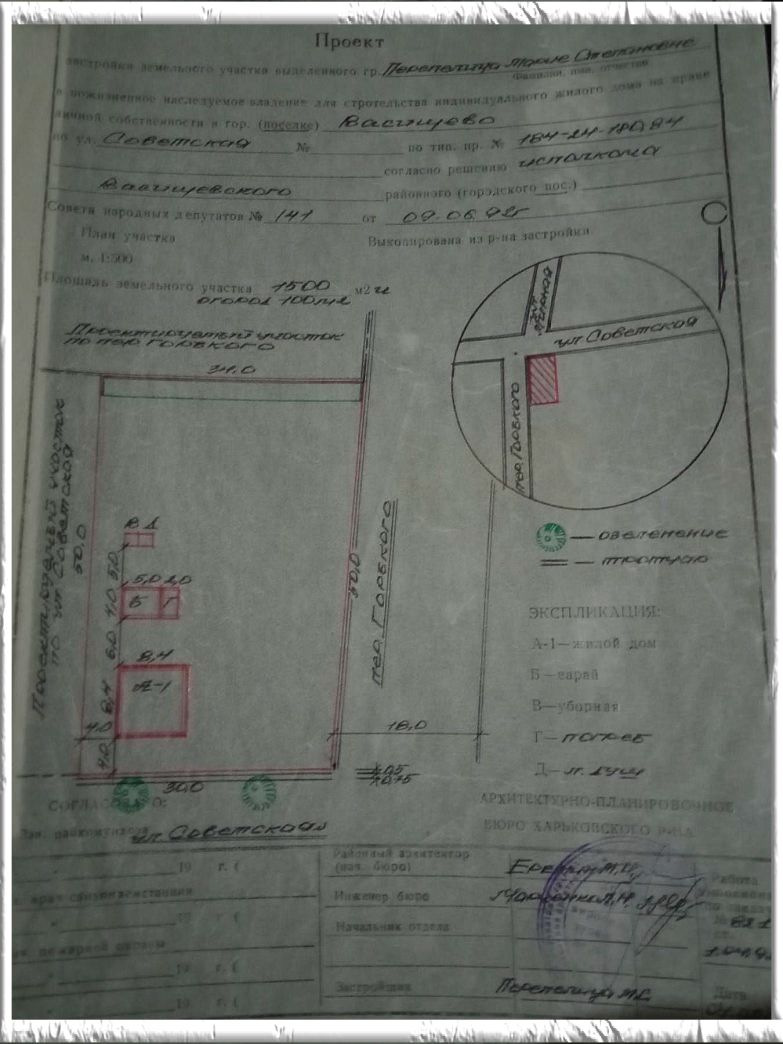 Проект
застройки земельного участка выделенного гр. Перепелица Марие Степановне
Фамилия, имя, отчество
в пожизненное наследуемое владение для стротельства индивидуального жилого дома на праве
личной собственности в гор. (поселке) Васищево
по ул. Советская № по тип. пр. № 184-24-180,84
согласно решению исполкома
Васищевского районного (городского пос.)
Совета народных депутатов № 141 от 09.06.92г
План участка
м. 1:500
Выкопирована из р-на застройки
С
Площадь земельного участка 1500 м2 и
огород 100м2
Проектируемый участок
по пер. Горького
34,0
Проектируемый участок
по ул. Советской
50,0
В Д
5,0
5,0 2,0
4,0
Б Г
6,0
8,4
А-1
8,4
4,0
4,0
50,0
пер. Горького
18,0
30,0
0,75
ул. Советская
ул. Советская
пер. Горького
— озеленение
— тротуар
ЭКСПЛИКАЦИЯ:
А-1—жилой дом
Б—сарай
В—уборная
Г—погреб
Д—л. душ
АРХИТЕКТУРНО-ПЛАНИРОВОЧНОЕ
БЮРО ХАРЬКОВСКОГО Р-НА
СОГЛАСОВАНО:
19 г. (
врач санэпидемстанции
19 г. (
пожарной охраны
19 г. (
19 г. (
Районный архитектор
(нач. бюро)
Инженер бюро
Начальник отдела
Застройщик Перепелица М.С.
Работа
выполнена
по заказу
№
от
Дата